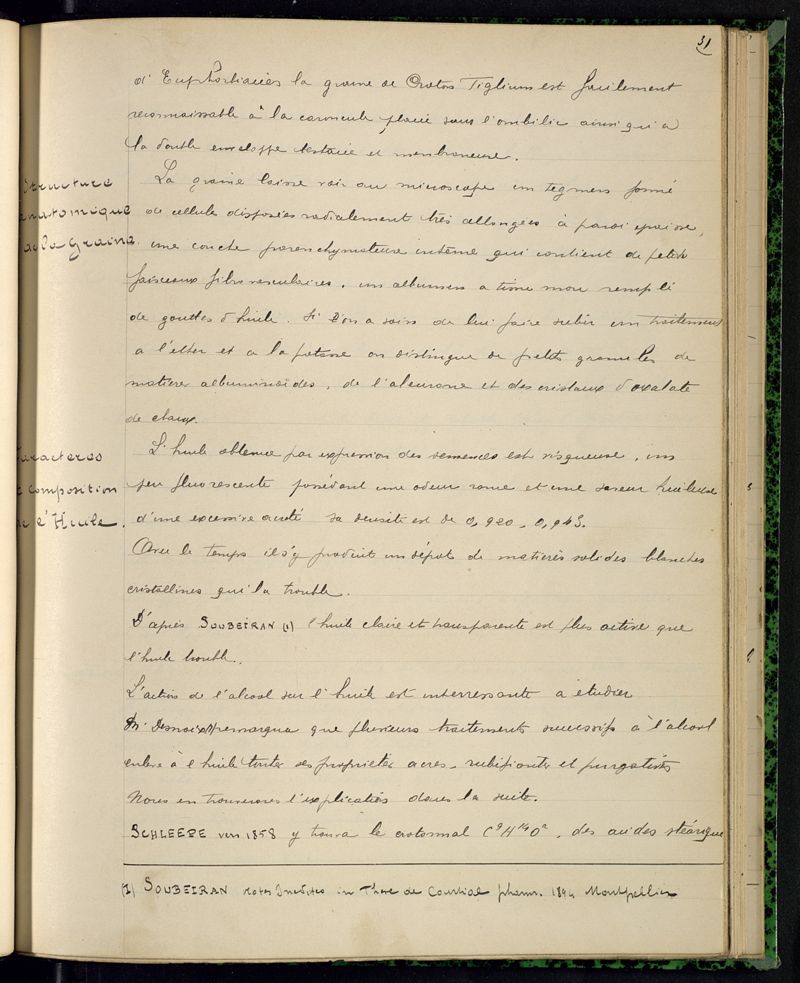 31
d'Euphorbiacées la graine de Croton Tiglium est facilement
reconnaissable à la caroncule placée sous l'ombilic ainsi qu'à
la double enveloppe testacée et membraneuse.
Structure
anatomique
de la Graine
La graine laisse voir au microscope un tegmen formé
de cellules disposées radialement très allongées à paroi épaisse,
une couche parenchymateuse interne qui contient de petits
faisceaux fibro vasculaires, un albumen a tissu mou rempli
de gouttes d'huile. Si l'on a soin de lui faire subir un traitement
a l'ether et a la potasse on distingue de petits granules de
matieres albuminoïdes, de l'aleurone et des cristaux d'oxalate
de chaux.
Caracteres
et Composition
de l'Huile.
L'huile obtenue par expression des semences est visqueuse, un
peu fluorescente possédant une odeur rance et une saveur huileuse
d'une excessive acreté sa densité est de 0,920 - 0,943.
Avec le temps il s'y produit un dépot de matières solides blanches
cristallines qui la trouble.
D'après SOUBEIRAN (1) l'huile claire et transparente est plus active que
l'huile trouble.
L'action de l'alcool sur l'huile est interressante a étudier
remarqua que plusieurs traitements successifs à l'alcool
enleve à l'huile toutes ses proprietes acres, rubefiantes et purgatives
Nous en trouverons l'explication dans la suite.
SCHLEEPE vers 1858 y trouva le crotonnal C⁹H¹⁴O², des acides stéarique
(1) SOUBEIRAN Notes Inedites in These de Courtial pharm. 1894 Montpellier